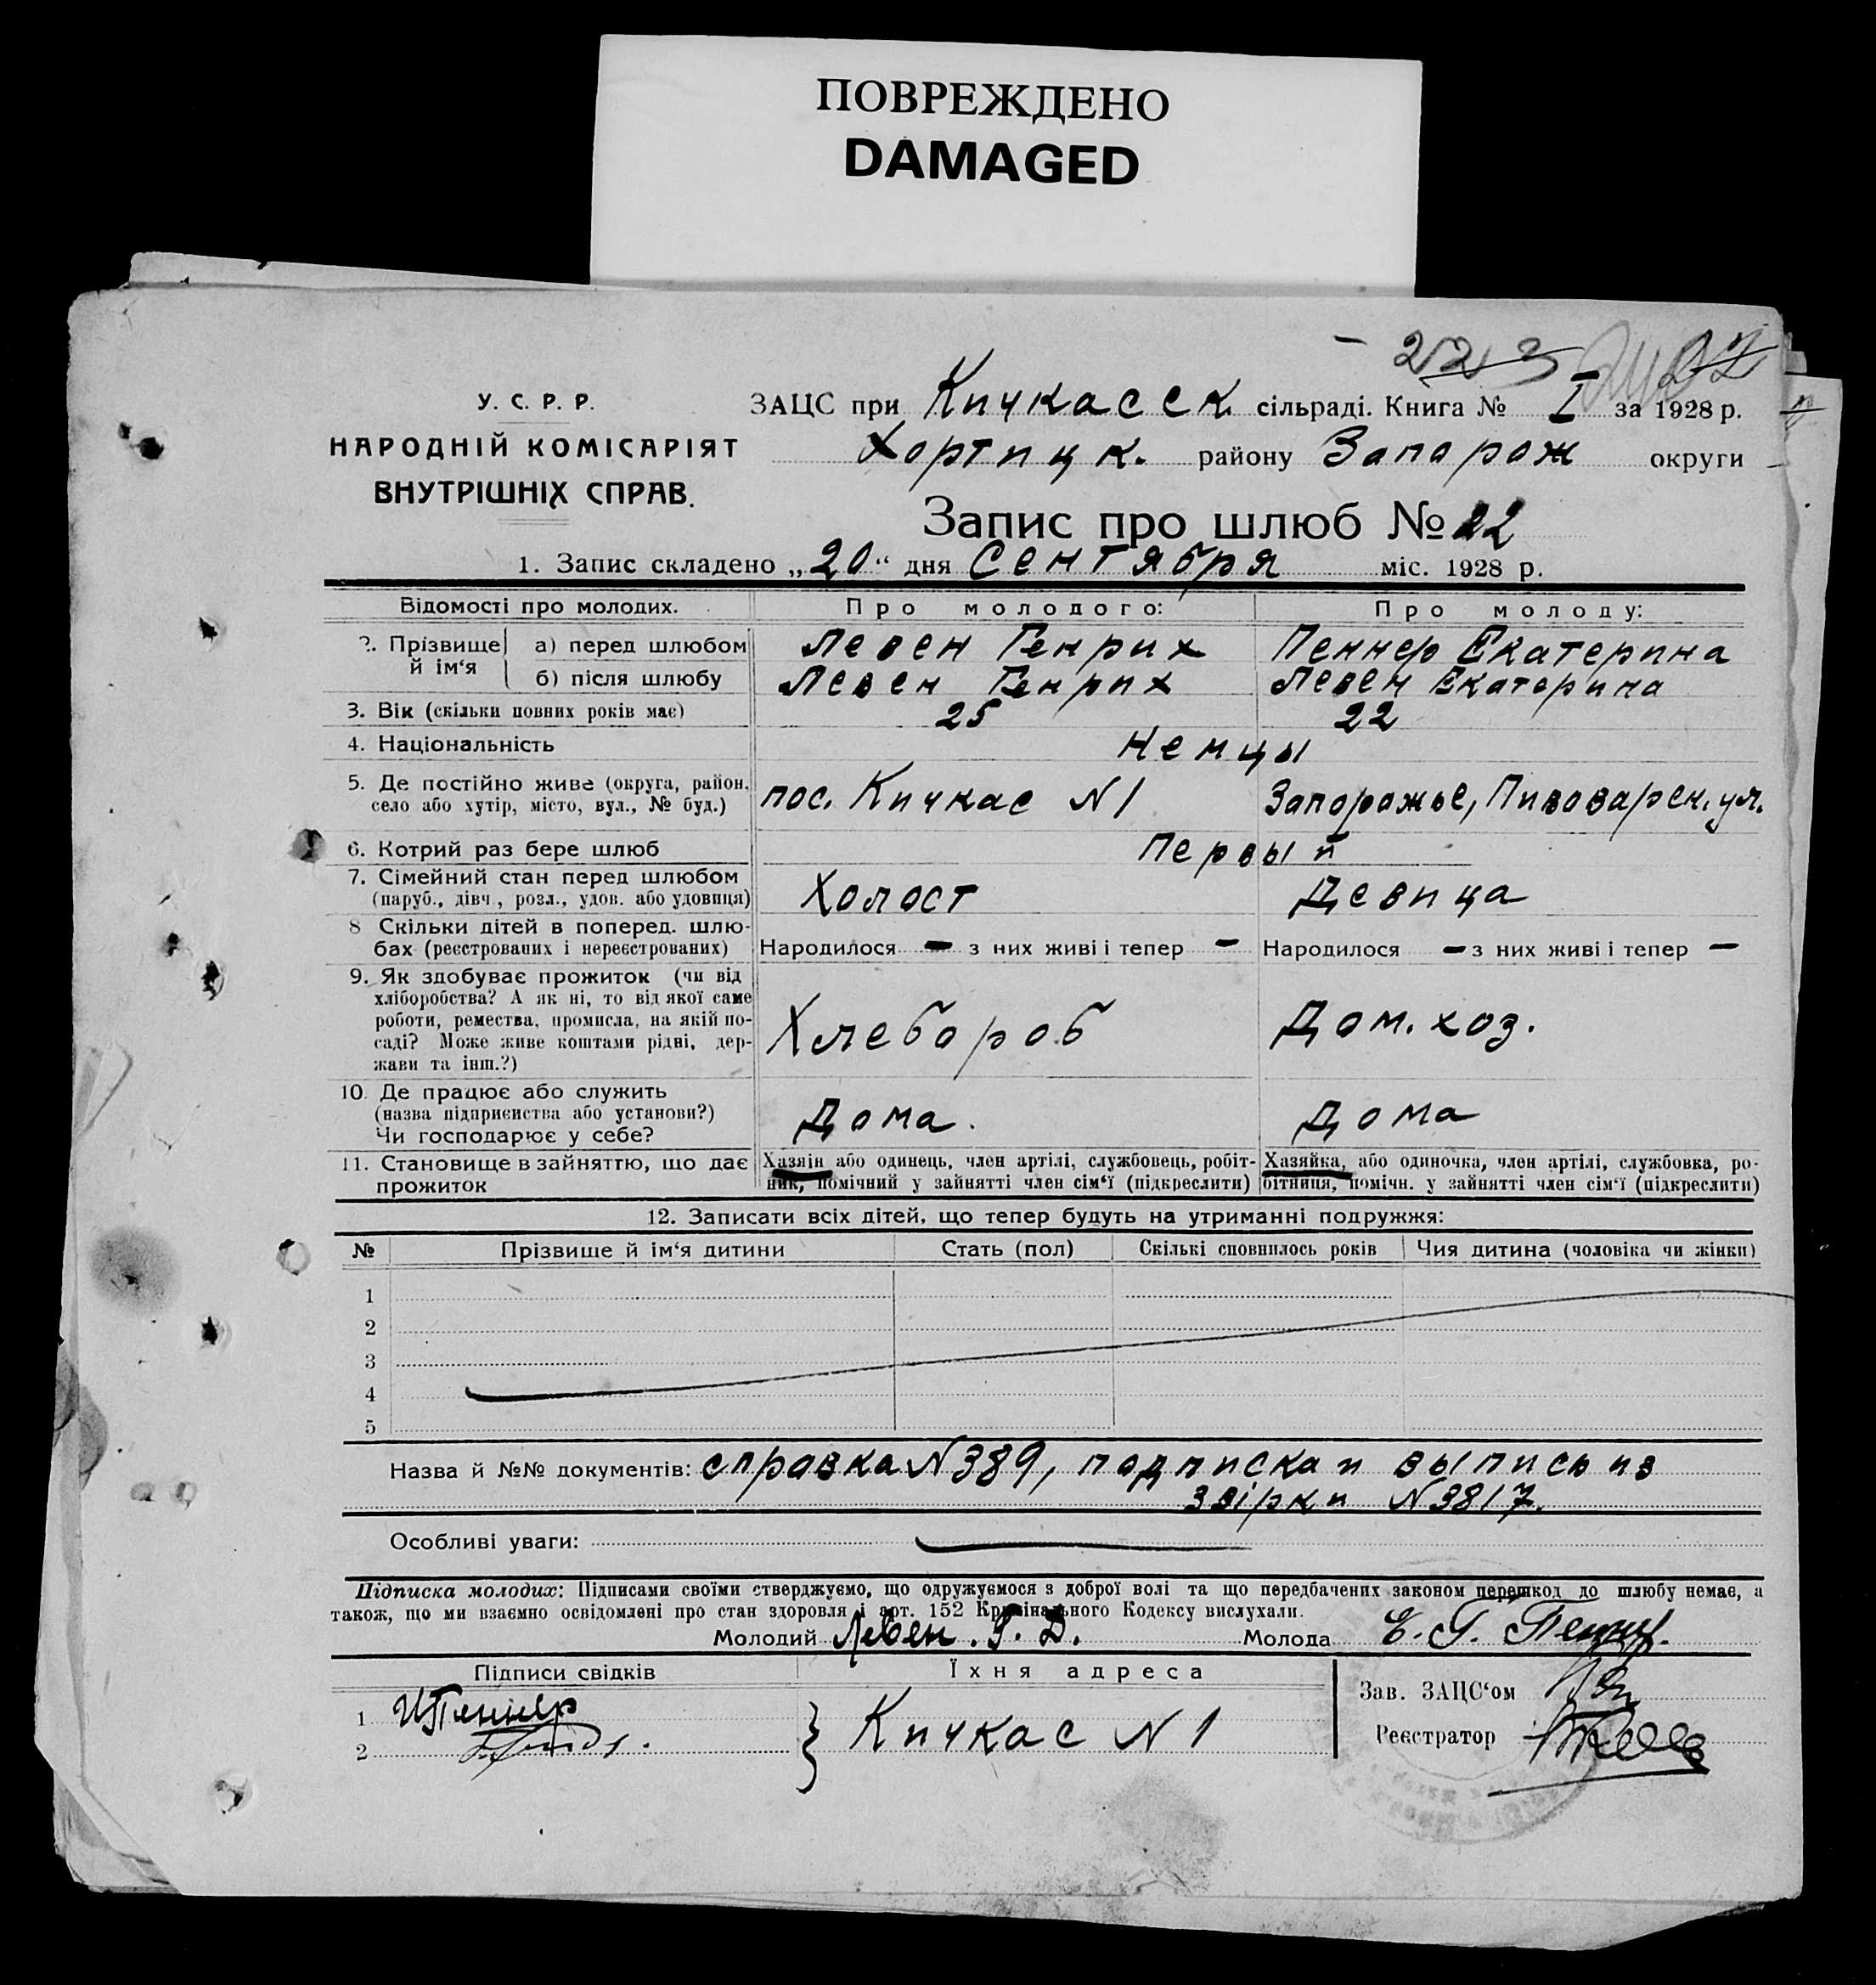 ПОВРЕЖДЕНО
DAMAGED
223
У. С. Р. Р.
НАРОДНІЙ КОМІСАРІЯТ
ВНУТРІШНІХ СПРАВ.
ЗАЦС при Кичкасск. сільраді. Книга № I за 1928 р.
Хортицк. району Запорож округи
Запис про шлюб № 22
1. Запис складено „20“ дня Сентября міс. 1928 р.
Відомості про молодих. Про молодого: Про молоду:
2. Прізвище й ім‘я а) перед шлюбом Левен Генрих Пеннер Екатерина
б) після шлюбу Левен Генрих Левен Екатерина
3. Вік (скільки повних років має) 25 22
4. Національність Немцы
5. Де постійно живе (округа, район, село або хутір, місто, вул., № буд.) пос. Кичкас N 1 Запорожье, Пивоварен. ул.
6. Котрий раз бере шлюб Первый
7. Сімейний стан перед шлюбом (паруб., дівч., розл., удов. або удовиця) Холост Девица
8 Скільки дітей в поперед. шлюбах (реєстрованих і нереєстрованих) Народилося — з них живі і тепер — Народилося — з них живі і тепер —
9. Як здобуває прожиток (чи від хліборобства? А як ні, то від якої саме роботи, ремества, промисла, на якій посаді? Може живе коштами рідні, держави та інш.?) Хлебороб Дом. хоз.
10. Де працює або служить (назва підприємства або установи?) Чи господарює у себе? Дома. Дома
11. Становище в зайняттю, що дає прожиток Хазяїн або одинець, член артілі, службовець, робітник, помічний у зайнятті член сім‘ї (підкреслити) Хазяйка, або одиночка, член артілі, службовка, робітниця, помічн. у зайнятті член сім‘ї (підкреслити)
12. Записати всіх дітей, що тепер будуть на утриманні подружжя:
№ Прізвище й ім‘я дитини Стать (пол) Скількі сповнилось років Чия дитина (чоловіка чи жінки)
1
2
3
4
5
Назва й №№ документів: справка N 389, подписка и выпись из
звірки N 3817.
Особливі уваги:
Підписка молодих: Підписами своїми стверджуємо, що одружуємося з доброї волі та що передбачених законом перешкод до шлюбу немає, а
також, що ми взаємно освідомлені про стан здоровля і арт. 152 Кримінального Кодексу вислухали.
Молодий Левен. Г. Д. Молода Е. Г. Пеннер.
Підписи свідків Їхня адреса
Зав. ЗАЦС‘ом
1 И Пеннер Кичкас N 1
Реєстратор
2